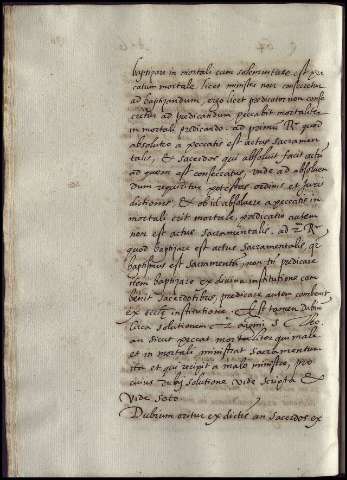 baptizare in mortali cum solemnitate est pec
catum mortale, licet minister non consecretur
ad baptizandum, ergo licet predicator non conse
cretur ad predicandum peccabit mortaliter
in mortali predicando. ad primum Rr quod
absolutio a peccatis est actus sacramen
talis, & sacerdos qui absoluit facit actum
ad quem est consecratus, unde ad absoluen
dum requiritur potestas ordinis et juris
dictionis, & ob id absoluere a peccatis in
mortali erit mortale, predicatio autem
non est actus sacramentalis. ad 2m Rr
quod baptizare est actus sacramentalis, qr
baptismus est sacramentum, non tn predicare
item baptizare ex diuina institutione con
uenit sacerdotibus, predicare autem conuenit
ex eccle institutione. Est tamen dubium
circa solutionem
an dicit peccat mortaliter qui male
et in mortali ministrat sacramentum
ita et qui recipit a malo ministro, pro
cuius dubij solutione vide scripta &
vide soto
Dubium oritur ex dictis an sacerdos ex